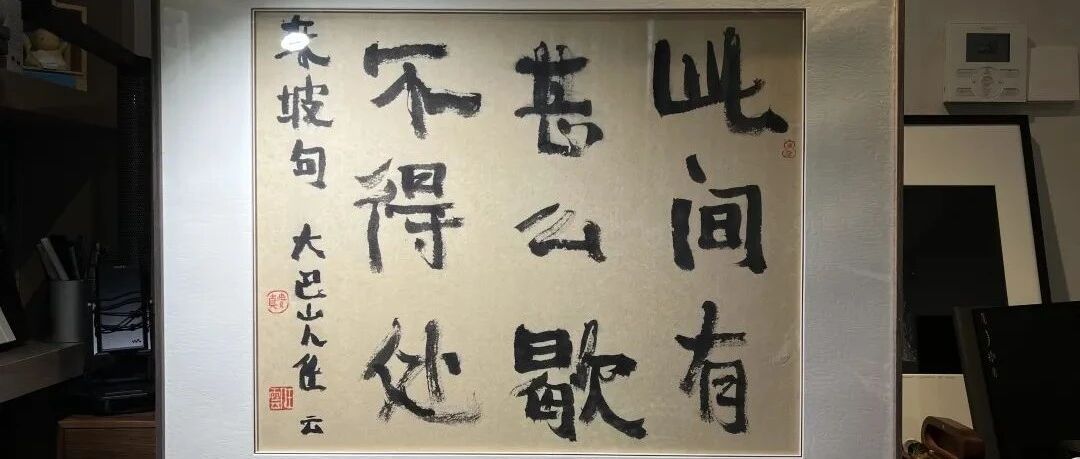 此间有
甚么歇
不得处
东坡句 大巴山人 云